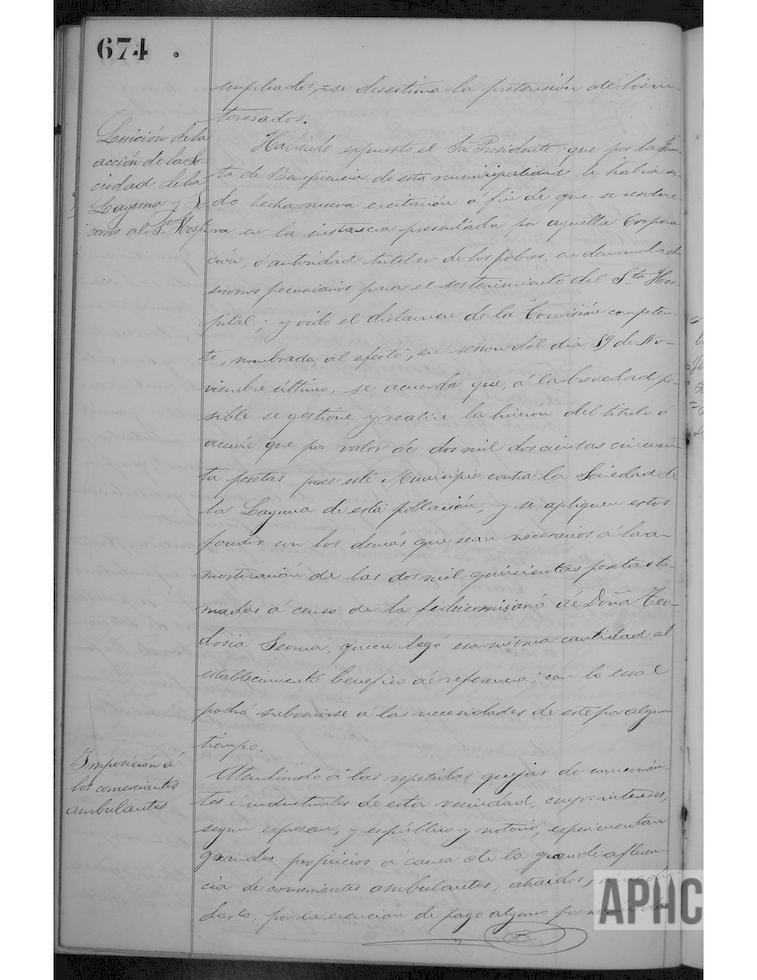 674
empleados, se desestima la pretensión de los in-
teresados.
Luición de la
acción de la So-
ciedad de la
Laguna y
al Sto. Hosp.
Habiendo expuesto el Sor. Presidente que por la Jun-
ta de Beneficencia de esta municipalidad, le había si-
do hecha nueva excitación a fin de que se resolvie-
ra en la instancia presentada por aquella Corpora-
ción, ó autoridad tutelar de los pobres, en demanda de
socorros pecuniarios para el sostenimiento del Sto. Hos-
pital; y oido el dictamen de la Comisión competen-
te, nombrada al efecto, en sesion del dia 19 de No-
viembre último, se acuerda que, á la brevedad po-
sible se gestione y realice la luición del titulo ó
acción que por valor de dos mil doscientas cincuen-
ta pesetas posee este Municipio contra la Sociedad de
la Laguna de esta población, y se apliquen estos
fondos con los demás que sean necesarios á la a-
mortización de las dos mil quinientas pesetas to-
madas á censo de la fideicomisaria de Doña Teo-
dosia quien legó esa misma cantidad al
establecimiento benéfico de referencia; con lo cual
podrá subvenirse á las necesidades de este por algun
tiempo.
Imposición á
los comerciantes
ambulantes
Atendiendo á las repetidas quejas de comercian-
tes é industriales de esta vecindad, cuyos intereses,
segun expresan, y es público y notorio, experimentan
grandes perjuicios á causa de la grande afluen-
cia de comerciantes ambulantes, atraidos,
por la exención de pago alguno por
APHC